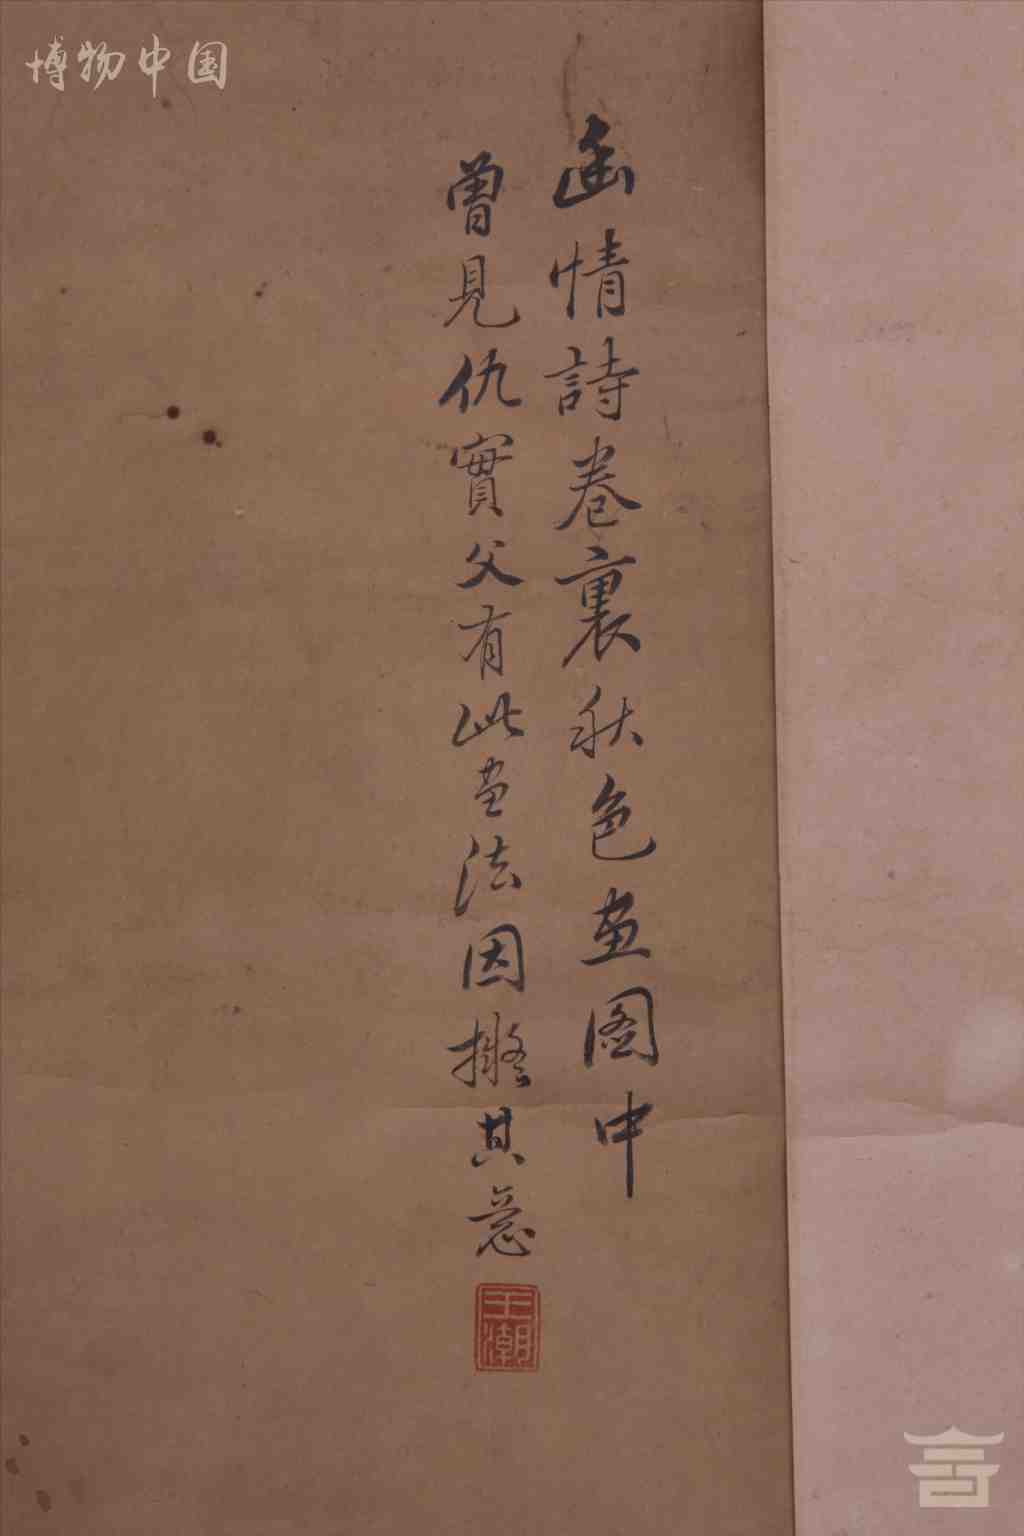 博物中国
幽情詩卷裏秋色畫圖中
曾見仇實父有此畫法因擬其意
王潮